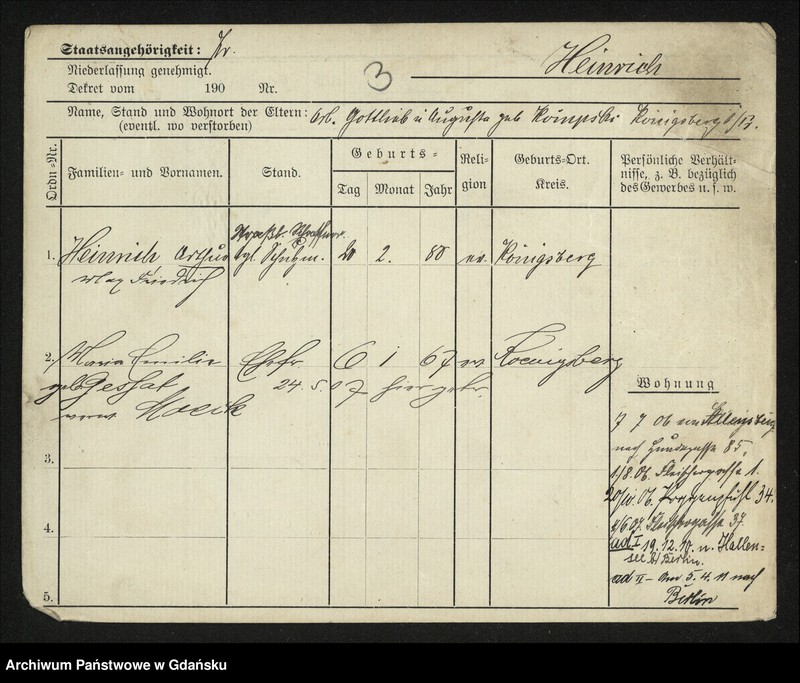 Staatsangehörigkeit: Pr.
Niederlassung genehmigt.
Dekret vom 190 Nr.
3
Heinrich
Name, Stand und Wohnort der Eltern: Arb. Gottlieb u Augusta geb Königsberg i/Pr.
(eventl. wo verstorben)
Ordn=Nr.
Familien= und Vornamen.
Stand.
Geburts=
Tag
Monat
Jahr
Reli-
gion
Geburts=Ort.
Kreis.
Persönliche Verhält-
nisse, z. B. bezüglich
des Gewerbes u. s. w.
1. Heinrich Arthur kgl. Schutzm. 20 2. 80 ev. Königsberg
Max Friedrich
2. Maria Emilie Ehefr. 6 1 67 ev Koenigsberg
geb Geshat 24. 5. 07 hier getr.
verw.
3.
4.
5.
Wohnung
7 7 06 von
nach Hundegasse 85,
1/8. 06. Fleischergasse 1.
20/10. 06. Poggenpfuhl 34.
1/6 07. Fleischergasse 37.
ad I 19. 12. 10. n. Hallen=
see b/ Berlin.
ad II – am 5. 4. 11 nach
Berlin
Archiwum Państwowe w Gdańsku